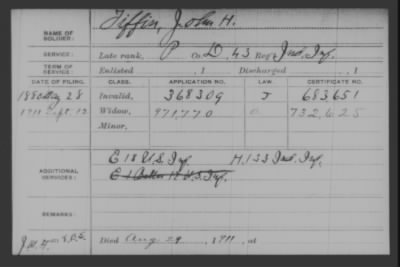 NAME OF SOLDIER: Tiffin, John H.
SERVICE: Late rank, P Co. D, 43 Reg't Ind. Inf.
TERM OF SERVICE: Enlisted , 1 Discharged , 1
DATE OF FILING. CLASS. APPLICATION NO. LAW. CERTIFICATE NO.
1880 28 Invalid, 368309 J 683651
1911 Sept. 12 Widow, 971,770 732,625
Minor,
ADDITIONAL SERVICES: E 18 U.S. Inf. H. 133 Ind. Inf.
E 1 Batt. 18 U.S. Inf.
REMARKS:
Died Aug 29, 1911, at